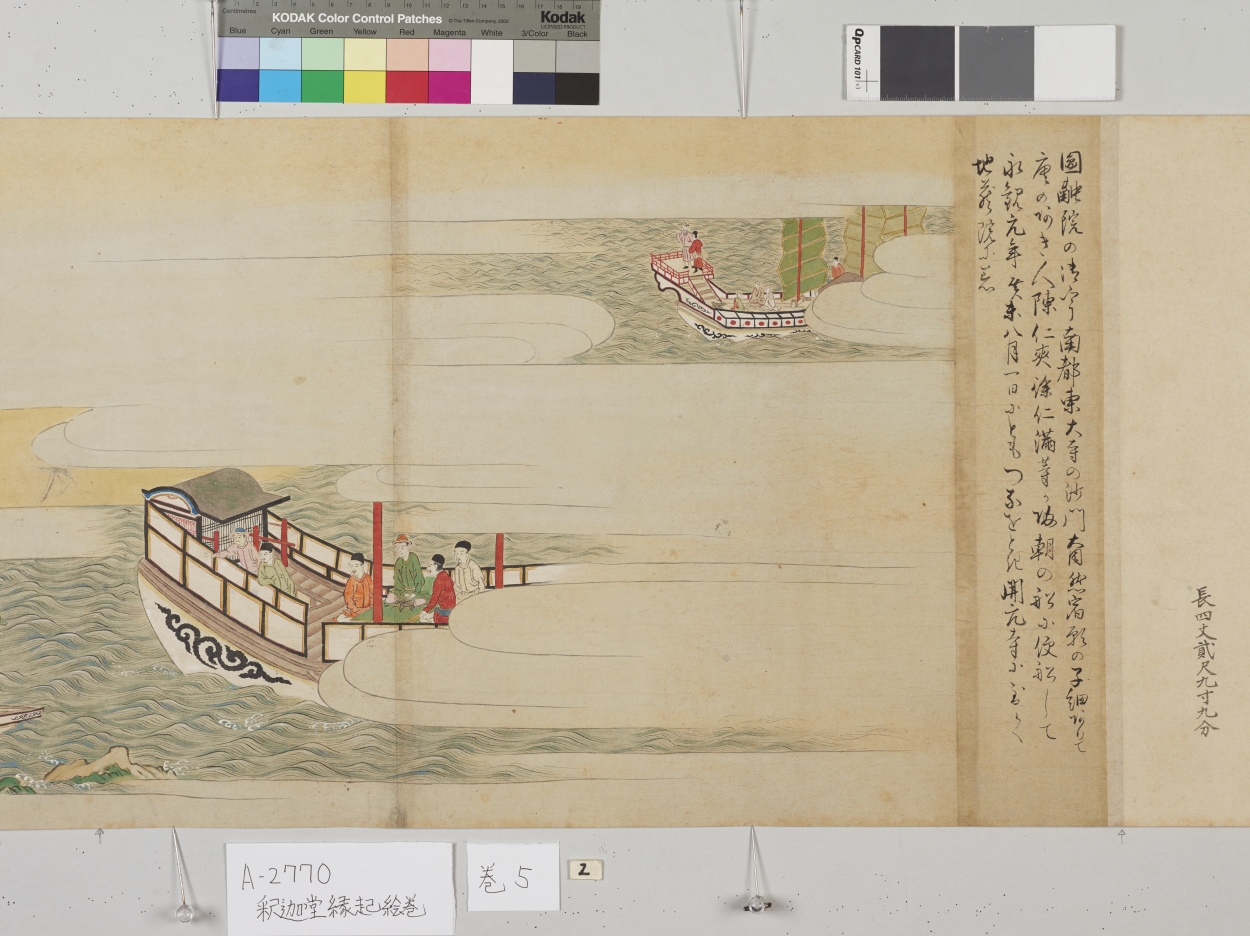 Centimetres
KODAK Color Control Patches
© The Tiffen Company, 2000
Kodak
LICENSED PRODUCT
Blue Cyan Green Yellow Red Magenta White 3/Color Black
OpCARD 101
長四丈貳尺九寸九分
圓融院の御宇南都東大寺の沙門奝然宿願の子細ありて
唐のあき人陳仁爽徐仁滿等か歸朝の船に便船して
永観元年癸未八月一日にともつなをとき開元寺にいたりて
地蔵院に
A-2770
釈迦堂縁起絵巻
巻5
2